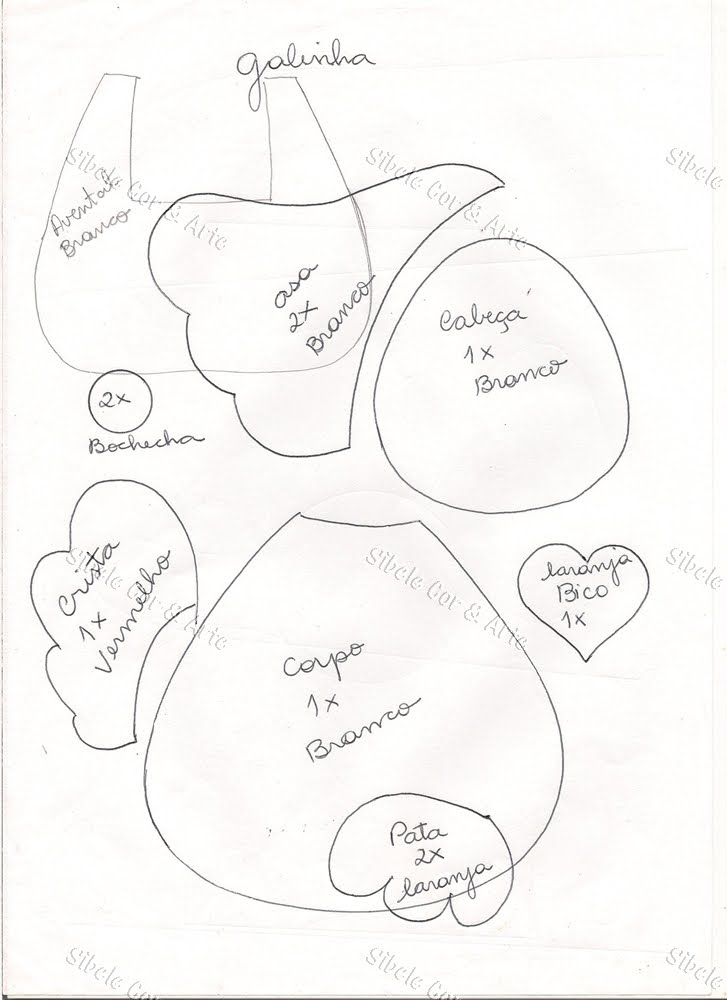 galinha
Sibele Cor & Arte
Sibele Cor & Arte
Sibele
Avental
Branco
asa
2x
Branco
Cabeça
1x
Branco
2x
Bochecha
Crista
1x
Vermelho
laranja
Bico
1x
Sibele Cor & Arte
Sibele Cor & Arte
Sibele
Corpo
1x
Branco
Pata
2x
laranja
Sibele Cor
Sibele Cor
Sibele